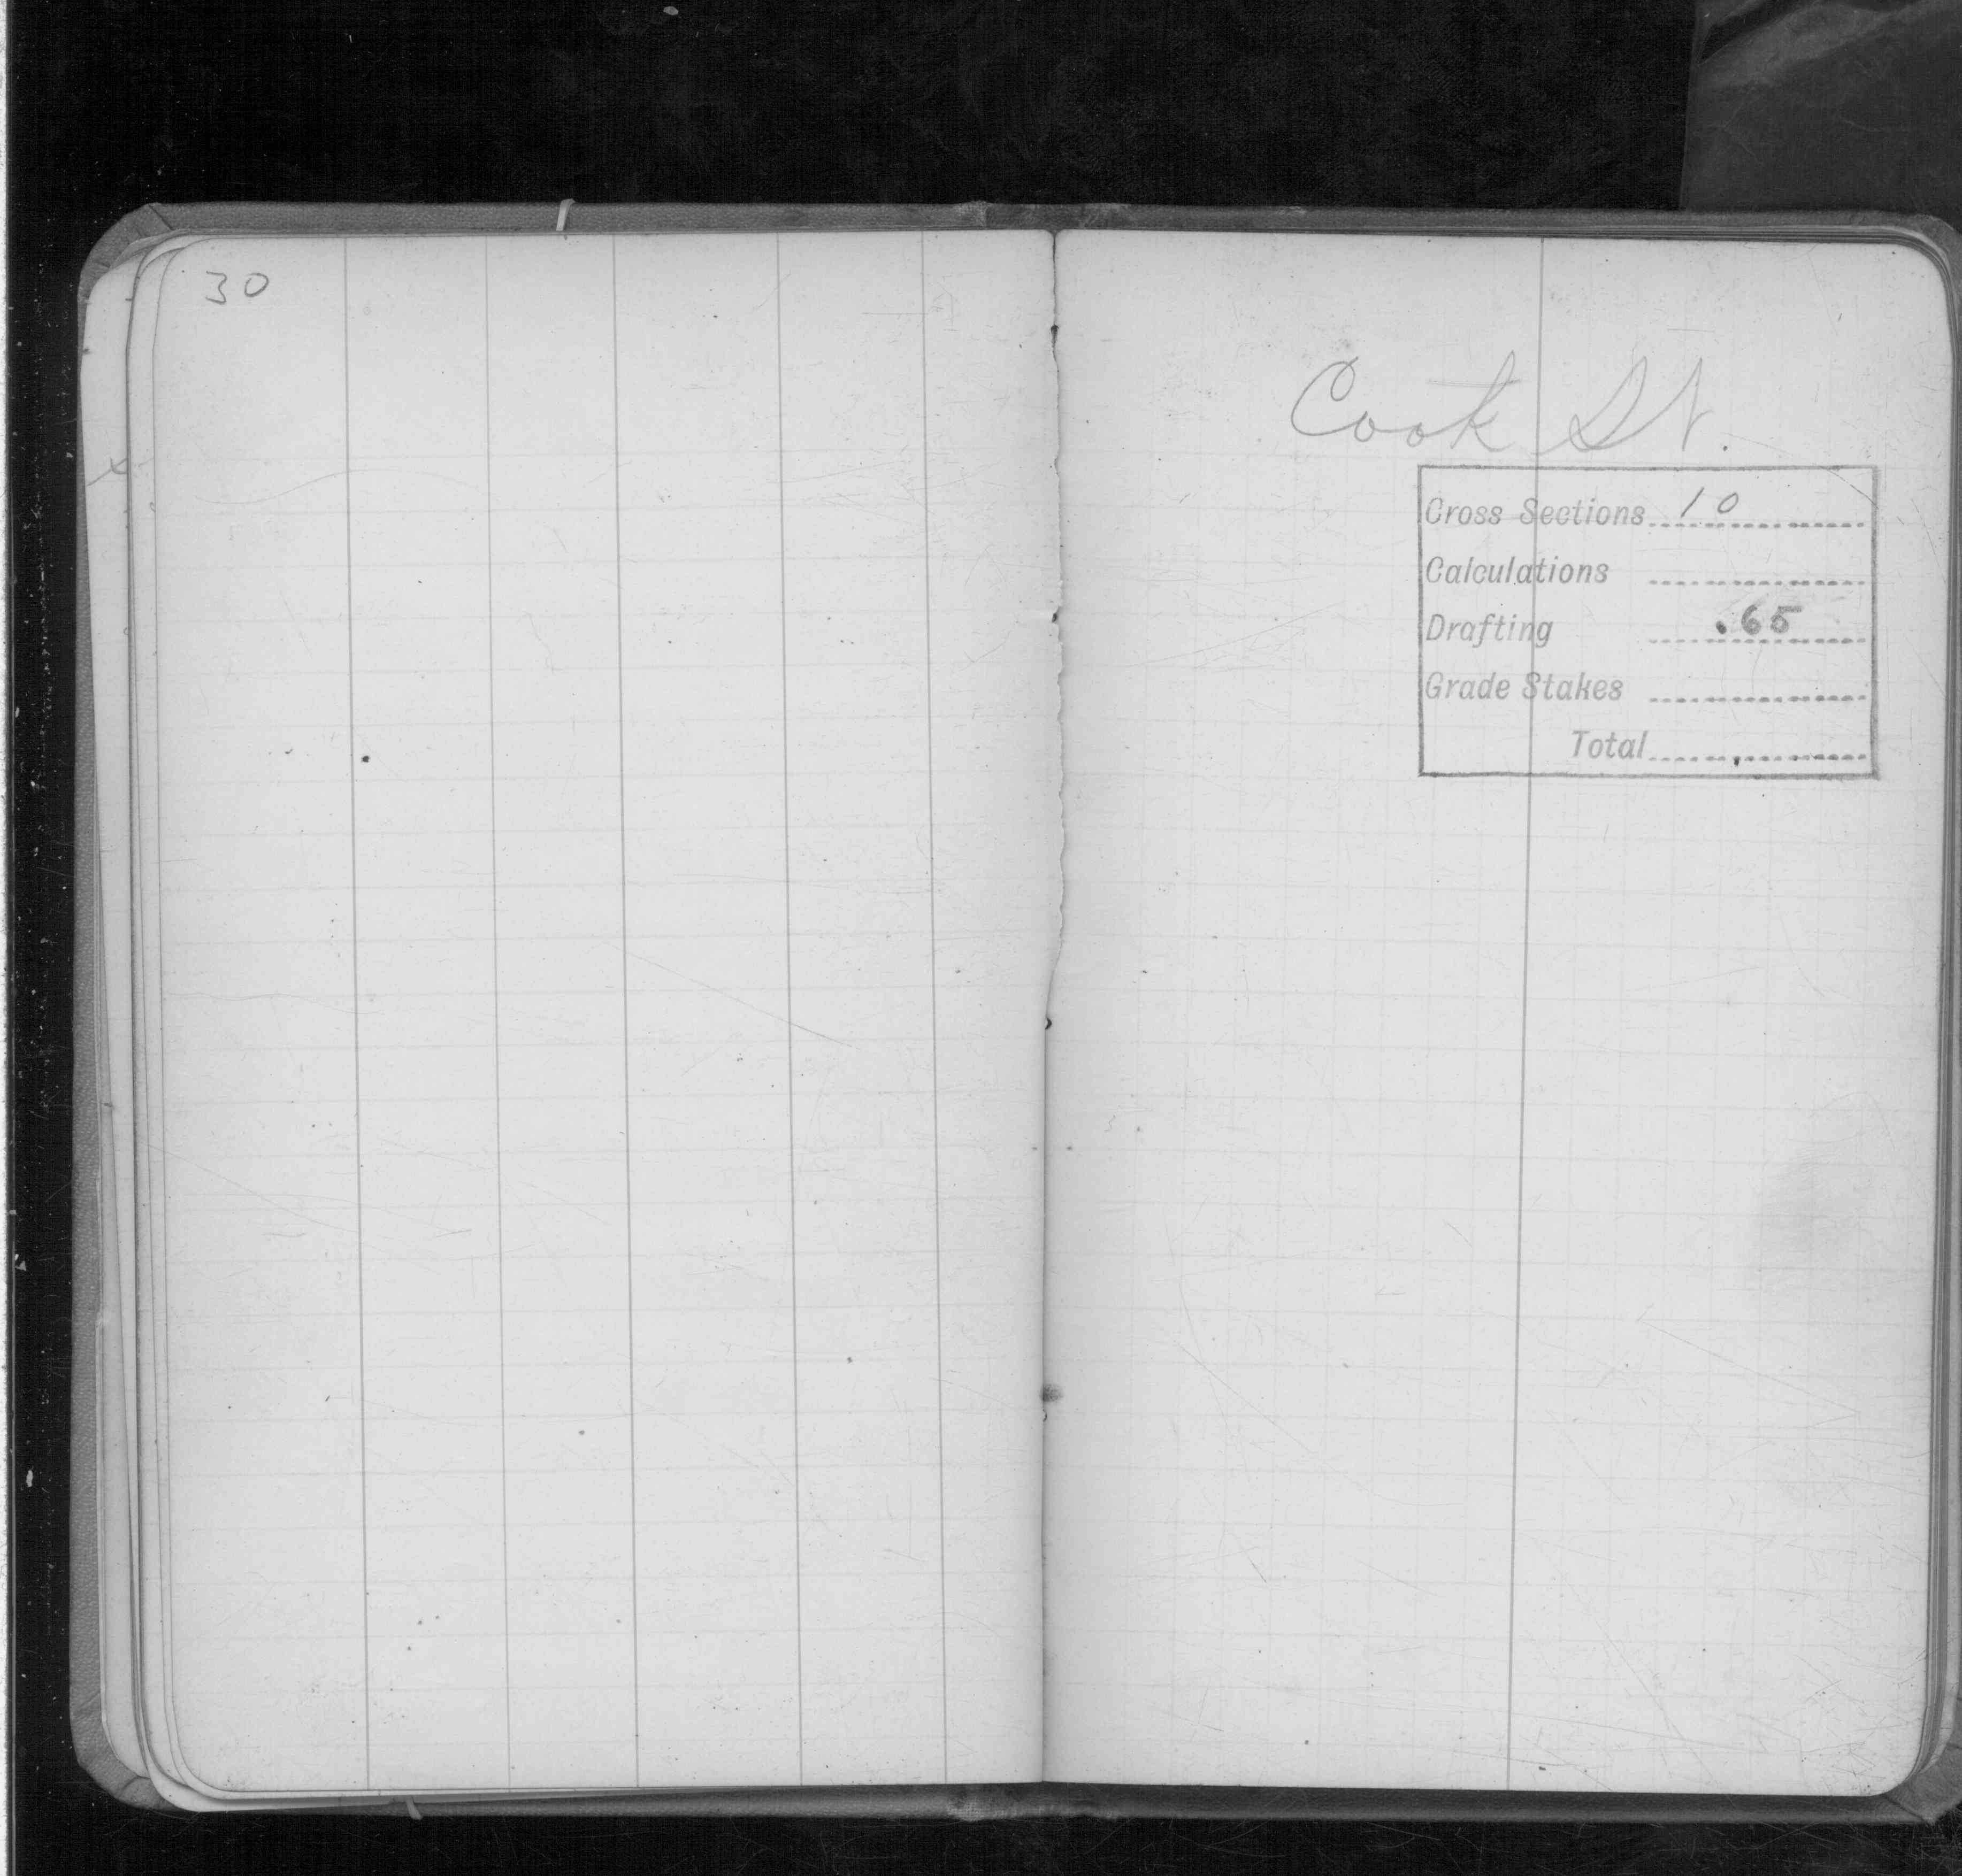 30
Cook St.
Cross Sections 10
Calculations
Drafting .65
Grade Stakes
Total